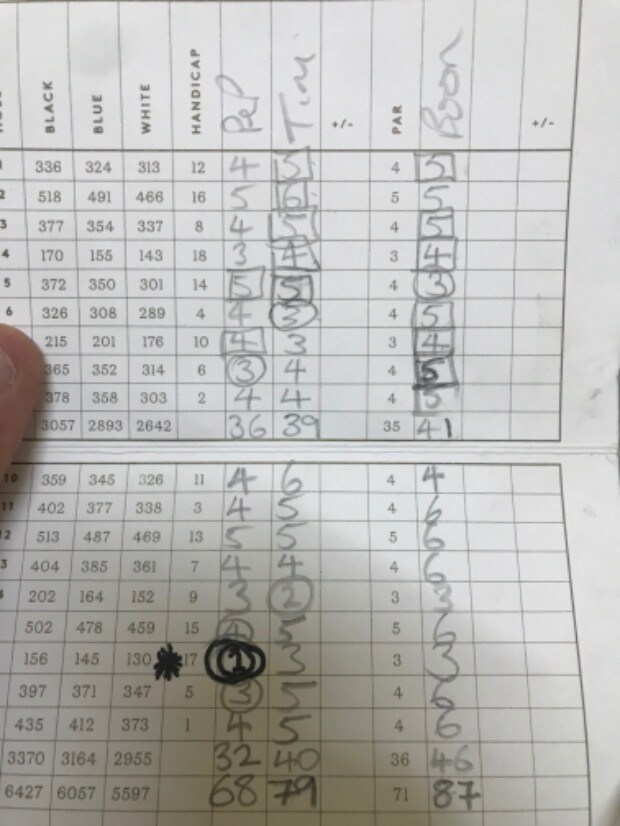 BLACK BLUE WHITE HANDICAP Tim +/- PAR +/-
1 336 324 313 12 4 5 4 5
2 518 491 466 16 5 6 5 5
3 377 354 337 8 4 5 4 5
4 170 155 143 18 3 4 3 4
5 372 350 301 14 5 5 4 3
6 326 308 289 4 4 3 4 5
215 201 176 10 4 3 3 4
365 352 314 6 3 4 4 5
378 358 303 2 4 4 4 5
3057 2893 2642 36 39 35 41
10 359 345 326 11 4 6 4 4
11 402 377 338 3 4 5 4 6
12 513 487 469 13 5 5 5 6
3 404 385 361 7 4 4 4 6
202 164 152 9 3 2 3 3
502 478 459 15 4 5 5 6
156 145 130 * 17 1 3 3 3
397 371 347 5 3 5 4 6
435 412 373 1 4 5 4 6
3370 3164 2955 32 40 36 46
6427 6057 5597 68 79 71 87